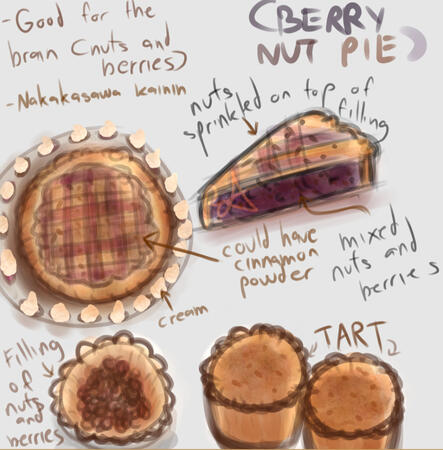 -Good for the
brain (nuts and
berries)
-Nakakasawa kainin
(BERRY
NUT PIE)
nuts
sprinkled on top of
filling
could have
cinnamon
powder
mixed
nuts and
berries
cream
Filling
of
nuts
and
berries
TART